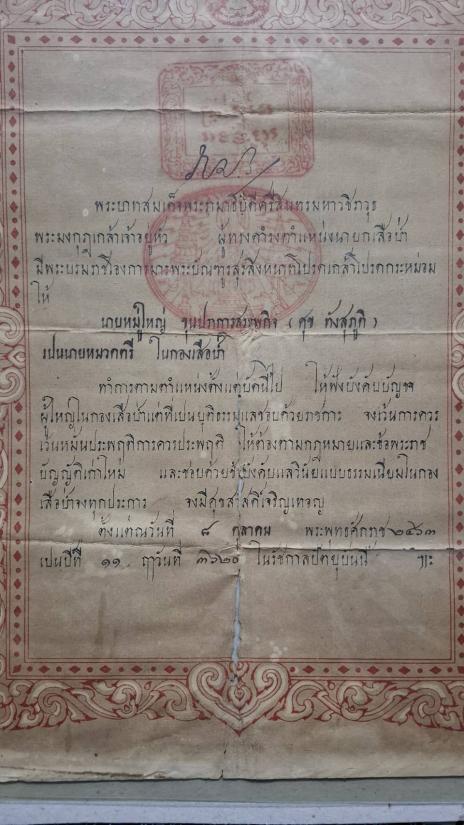 พระบาทสมเด็จพระรามาธิบดีศรีสินทรมหาวชิราวุธ
พระมงกุฎเกล้าเจ้าอยู่หัว ผู้ทรงดำรงตำแหน่งนายกเสือป่า
มีพระบรมราชโองการมารพระบัณฑูรสุรสิงหนาทโปรดเกล้าโปรดกระหม่อม
ให้
นายหมู่ใหญ่ ขุนปราการสรพกิจ (
เป็นนายหมวดตรี ในกองเสือป่า
ทำการตามตำแหน่งตั้งแต่บัดนี้ไป ให้ฟังบังคับบัญชา
ผู้ใหญ่ในกองเสือป่าแต่ที่เป็นยุติธรรมแลชอบด้วยราชการ จงเว้นการควร
เว้นหมั่นประพฤติการควรประพฤติ ให้ต้องตามกฎหมายและข้อพระราช
บัญญัติเก่าใหม่ และชอบด้วยข้อบังคับแลวินัยแบบธรรมเนียมในกอง
เสือป่าจงทุกประการ จงมีศุขสวัสดิ์เจริญเทอญ
ตั้งแต่ณวันที่ ๘ ตุลาคม พระพุทธศักราช ๒๔๖๓
เป็นปีที่ ๑๑ ฤาวันที่ ๓๖๒๑ ในรัชกาลปัตยุบันนี้